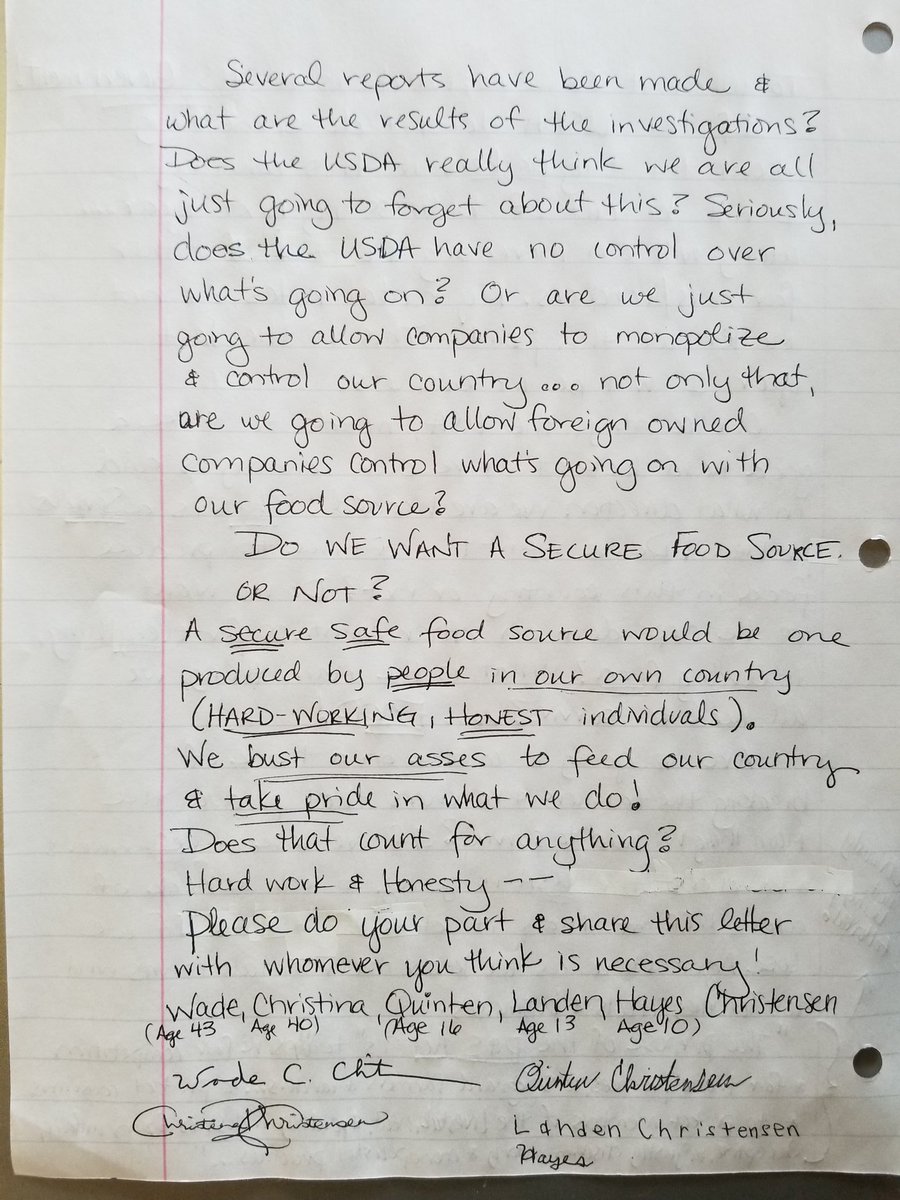 Several reports have been made &
what are the results of the investigations?
Does the USDA really think we are all
just going to forget about this? Seriously,
does the USDA have no control over
what's going on? Or are we just
going to allow companies to monopolize
& control our country... not only that,
are we going to allow foreign owned
companies control what's going on with
our food source?
DO WE WANT A SECURE FOOD SOURCE.
OR NOT?
A secure safe food source would be one
produced by people in our own country
(HARD-WORKING, HONEST individuals).
We bust our asses to feed our country
& take pride in what we do!
Does that count for anything?
Hard work & Honesty --
Please do your part & share this letter
with whomever you think is necessary!
Wade, Christina, Quinten, Landen, Hayes Christensen
(Age 43 Age 40) (Age 16 Age 13 Age 10)
Wade C. Quinten Christensen
Christina Christensen
Landen Christensen
Hayes